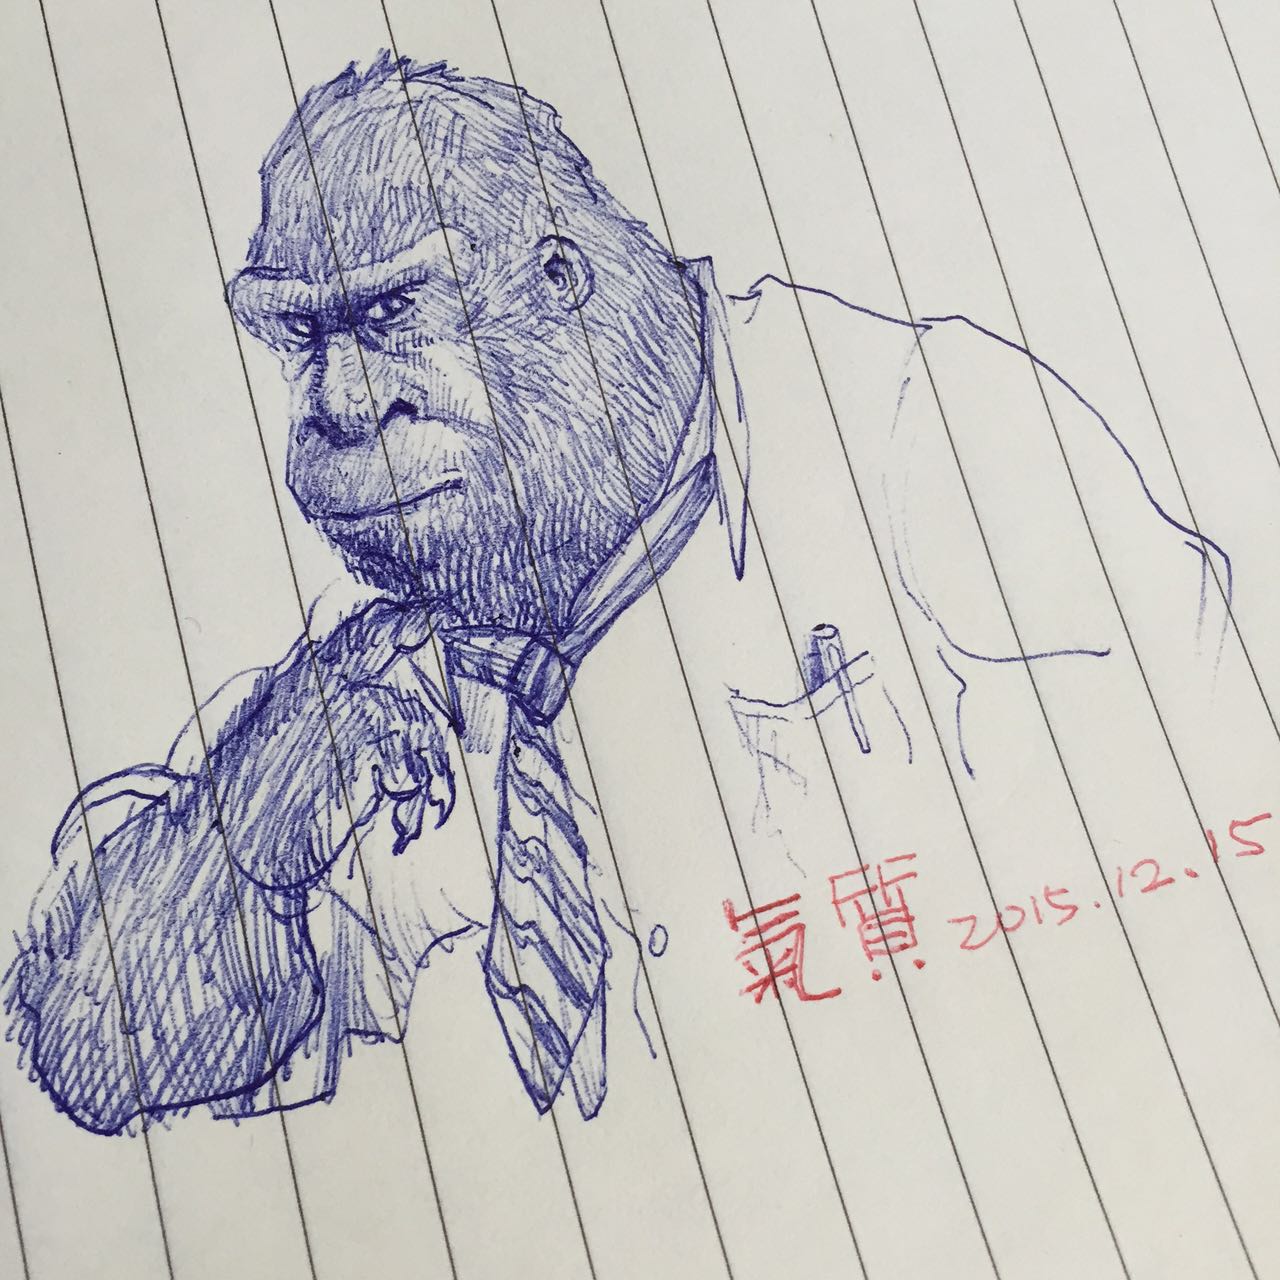 氣質 2015.12.15